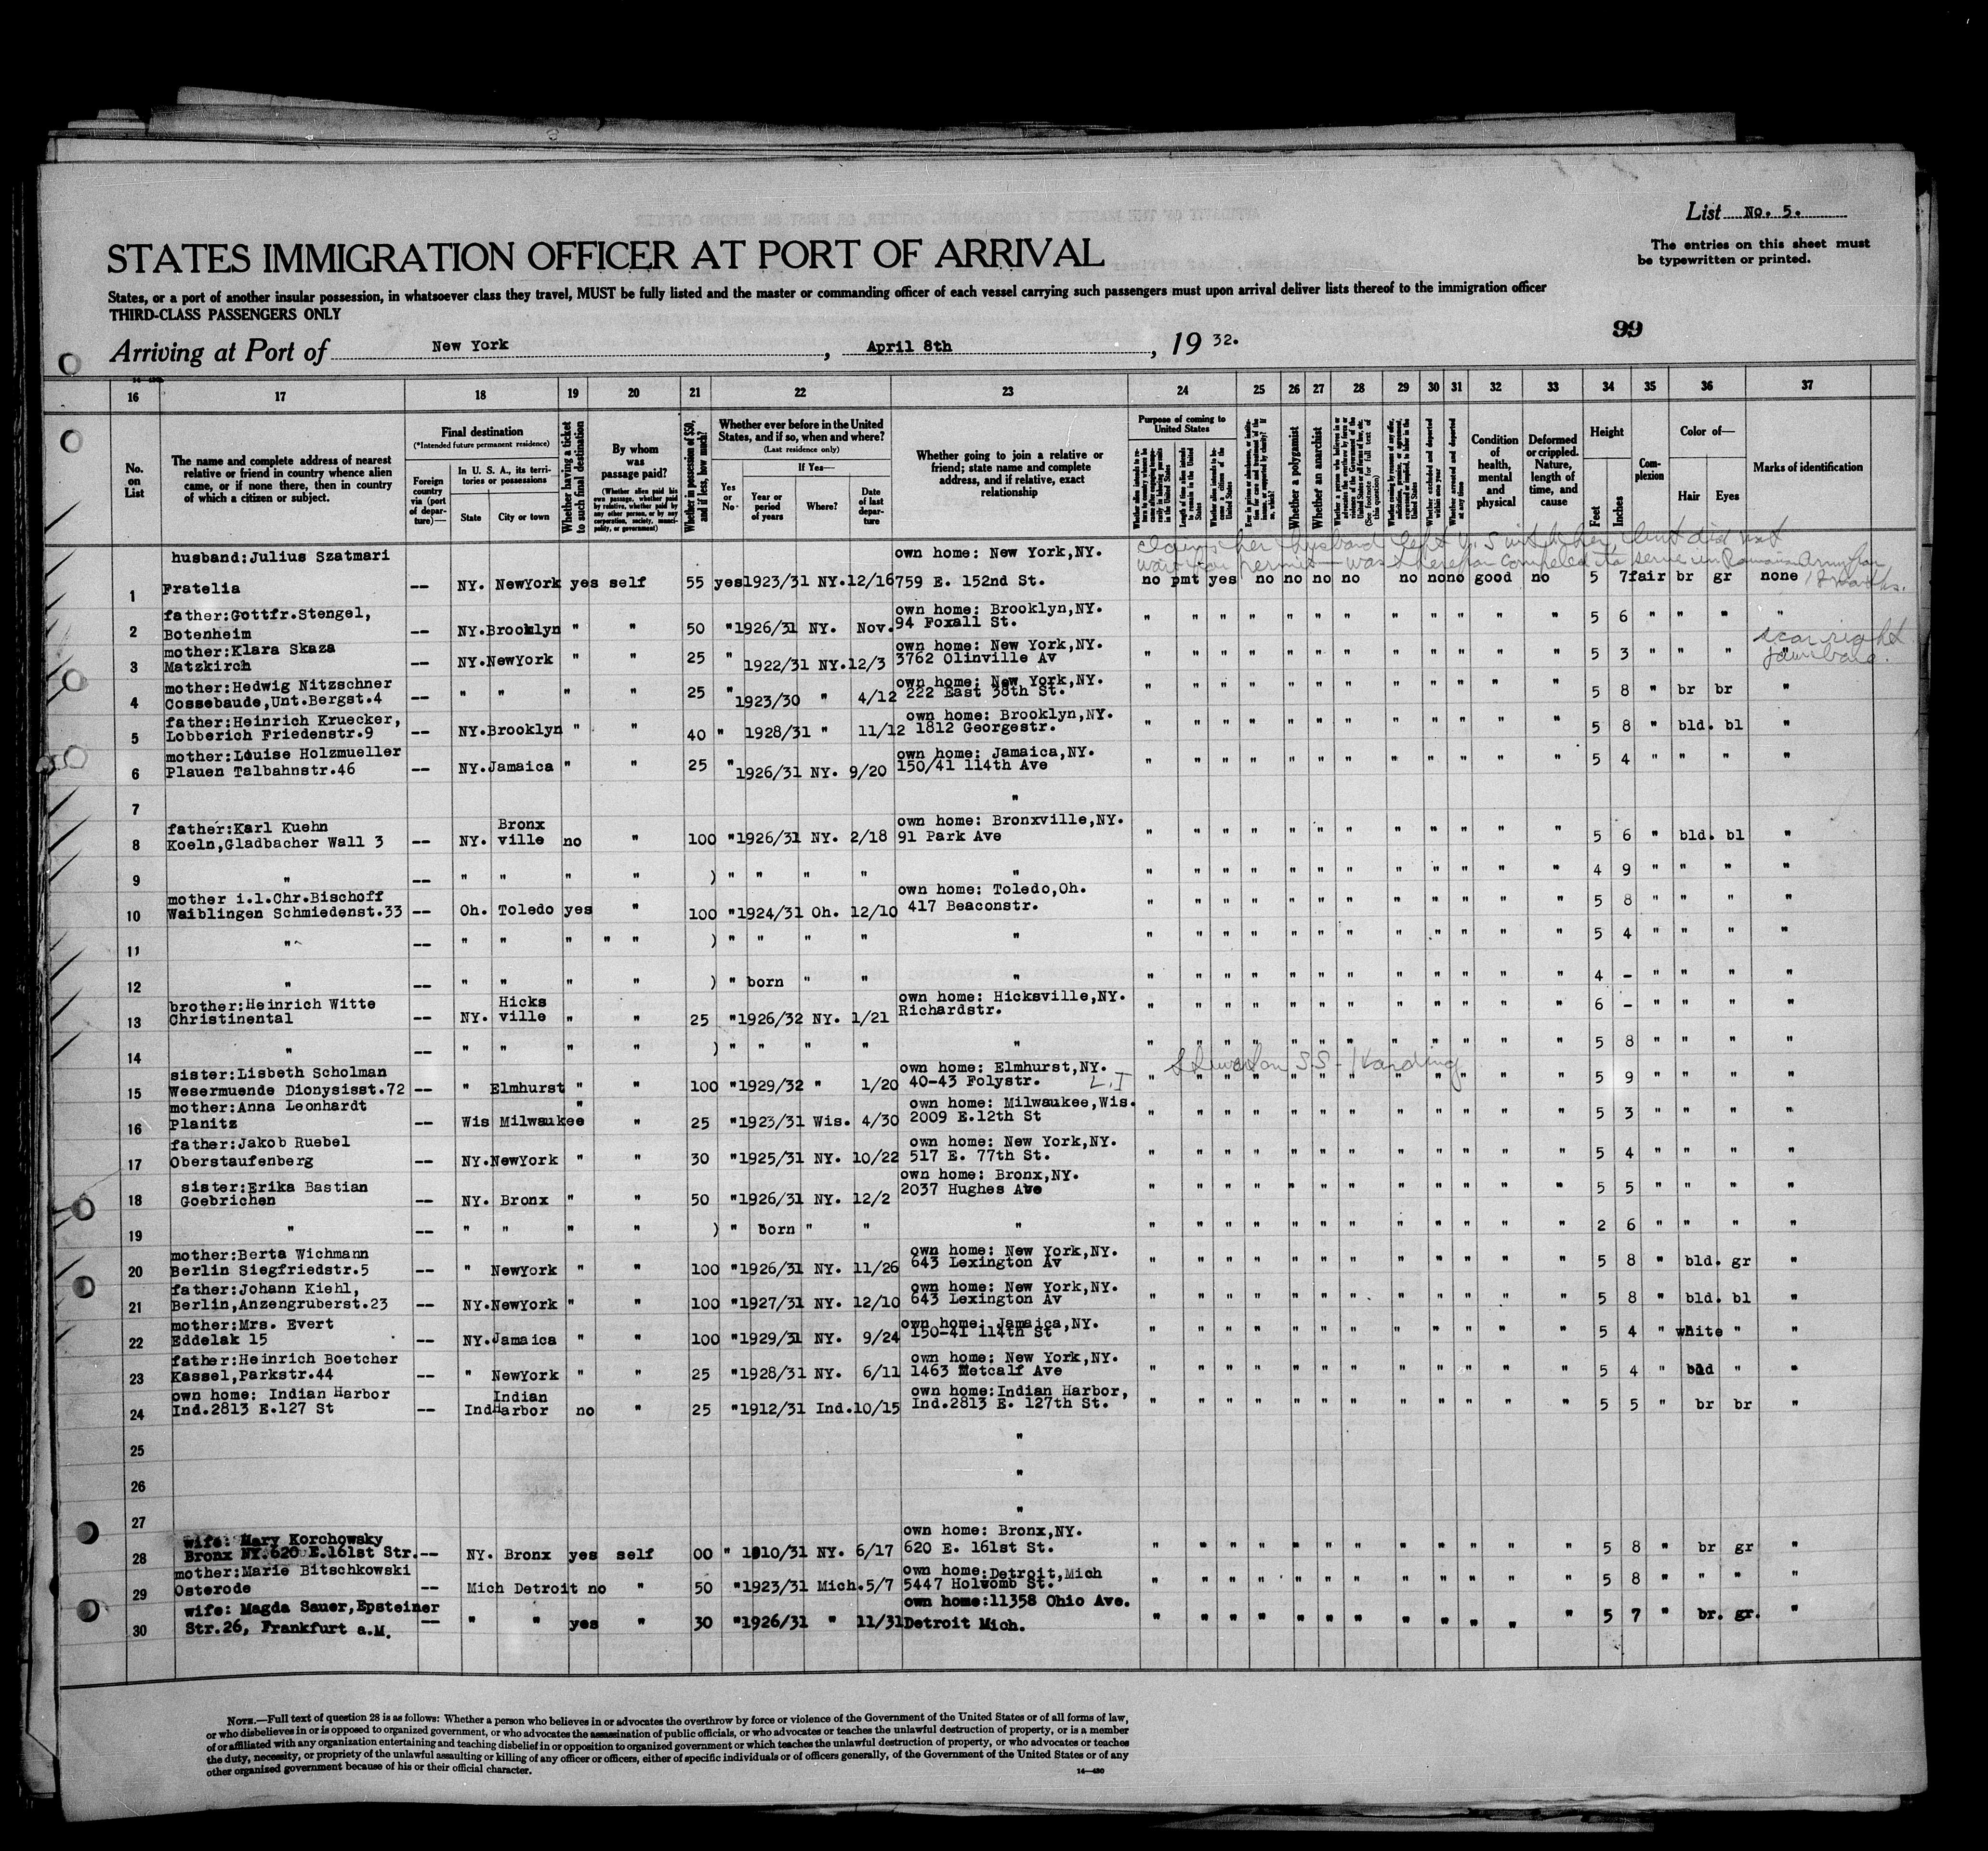 List No. 5.
STATES IMMIGRATION OFFICER AT PORT OF ARRIVAL
The entries on this sheet must
be typewritten or printed.
States, or a port of another insular possession, in whatsoever class they travel, MUST be fully listed and the master or commanding officer of each vessel carrying such passengers must upon arrival deliver lists thereof to the immigration officer
THIRD-CLASS PASSENGERS ONLY
99
Arriving at Port of New York, April 8th, 19 32.
16 17 18 19 20 21 22 23 24 25 26 27 28 29 30 31 32 33 34 35 36 37
No. on List
The name and complete address of nearest relative or friend in country whence alien came, or if none there, then in country of which a citizen or subject.
Final destination
(*Intended future permanent residence)
Foreign country via (port of departure)—
In U. S. A., its territories or possessions
State City or town
Whether having a ticket to such final destination
By whom was passage paid?
(Whether alien paid his own passage, whether paid by relative, whether paid by any other person, or by any corporation, society, municipality, or government)
Whether in possession of $50, and if less, how much?
Whether ever before in the United States, and if so, when and where?
(Last residence only)
If Yes—
Yes or No
Year or period of years
Where?
Date of last departure
Whether going to join a relative or friend; state name and complete address, and if relative, exact relationship
Purpose of coming to United States
Whether a polygamist
Whether an anarchist
Condition of health, mental and physical
Deformed or crippled. Nature, length of time, and cause
Height
Feet Inches
Complexion
Color of—
Hair Eyes
Marks of identification
claims her husband left U.S with her but did not
wait for permit — was therefor compelled to serve in Romanian Army for
18 months.
husband:Julius Szatmari own home: New York,NY.
1 Fratelia -- NY. NewYork yes self 55 yes1923/31 NY.12/16 759 E. 152nd St. no pmt yes no no no no no no no good no 5 7 fair br gr none
father:Gottfr.Stengel, own home: Brooklyn,NY.
2 Botenheim -- NY.Brooklyn " " 50 "1926/31 NY. Nov. 94 Foxall St. " " " " " " " " " " " " 5 6 " " " "
mother:Klara Skaza own home: New York,NY. scar right
3 Matzkirch -- NY.NewYork " " 25 " 1922/31 NY.12/3 3762 Olinville Av " " " " " " " " " " " " 5 3 " " " " jawbone.
mother:Hedwig Nitzschner own home: New York,NY.
4 Cossebaude,Unt.Bergst.4 -- " " " " 25 " 1923/30 " 4/12 222 East 38th St. " " " " " " " " " " " " 5 8 " br br "
father:Heinrich Kruecker, own home: Brooklyn,NY.
5 Lobberich Friedenstr.9 -- NY.Brooklyn " " 40 " 1928/31 " 11/12 1812 Georgestr. " " " " " " " " " " " " 5 8 " bld. bl "
mother:Louise Holzmueller own home: Jamaica,NY.
6 Plauen Talbahnstr.46 -- NY.Jamaica " " 25 "1926/31 NY. 9/20 150/41 114th Ave " " " " " " " " " " " " 5 4 " " " "
7 "
father:Karl Kuehn Bronx own home: Bronxville,NY.
8 Koeln,Gladbacher Wall 3 -- NY. ville no " 100 "1926/31 NY. 2/18 91 Park Ave " " " " " " " " " " " " 5 6 " bld. bl "
9 " -- " " " " ) " " " " " " " " " " " " " " " " " " 4 9 " " " "
mother i.l.Chr.Bischoff own home: Toledo,Oh.
10 Waiblingen Schmiedenst.33 -- Oh. Toledo yes " 100 "1924/31 Oh. 12/10 417 Beaconstr. " " " " " " " " " " " " 5 8 " " " "
11 " -- " " " " " ) " " " " " " " " " " " " " " " " " 5 4 " " " "
12 " -- " " " " ) " born " " " " " " " " " " " " " " " 4 - " " " "
brother:Heinrich Witte Hicks own home: Hicksville,NY.
13 Christinental -- NY. ville " " 25 "1926/32 NY. 1/21 Richardstr. " " " " " " " " " " " " 6 - " " " "
14 " -- " " " " ) " " " " " " " " " " " " " " " " " 5 8 " " " "
sister:Lisbeth Scholman own home: Elmhurst,NY. SS - Harding
15 Wesermuende Dionysisst.72 -- " Elmhurst " " 100 "1929/32 " 1/20 40-43 Folystr. L.I " " " " " " " " " " " " 5 9 " " " "
mother:Anna Leonhardt own home: Milwaukee,Wis.
16 Planitz -- Wis Milwaukee " " 25 "1923/31 Wis. 4/30 2009 E.12th St " " " " " " " " " " " " 5 3 " " " "
father:Jakob Ruebel own home: New York,NY.
17 Oberstaufenberg -- NY.NewYork " " 30 "1925/31 NY. 10/22 517 E. 77th St. " " " " " " " " " " " " 5 4 " " " "
sister:Erika Bastian own home: Bronx,NY.
18 Goebrichen -- NY. Bronx " " 50 "1926/31 NY. 12/2 2037 Hughes Ave " " " " " " " " " " " " 5 5 " " " "
19 " -- " " " " ) " born " " " " " " " " " " " " " " " 2 6 " " " "
mother:Berta Wichmann own home: New York,NY.
20 Berlin Siegfriedstr.5 -- " NewYork " " 100 "1926/31 NY. 11/26 643 Lexington Av " " " " " " " " " " " " 5 8 " bld. gr "
father:Johann Kiehl, own home: New York,NY.
21 Berlin,Anzengruberst.23 -- NY.NewYork " " 100 "1927/31 NY. 12/10 643 Lexington Av " " " " " " " " " " " " 5 8 " bld. bl "
mother:Mrs. Evert own home: Jamaica,NY.
22 Eddelak 15 -- NY.Jamaica " " 100 "1929/31 NY. 9/24 150-41 114th St " " " " " " " " " " " " 5 4 " white " "
father:Heinrich Boetcher own home: New York,NY.
23 Kassel,Parkstr.44 -- " NewYork " " 25 "1928/31 NY. 6/11 1463 Metcalf Ave " " " " " " " " " " " " 5 4 " bld " "
own home: Indian Harbor Indian own home:Indian Harbor,
24 Ind.2813 E.127 St -- Ind Harbor no " 25 "1912/31 Ind.10/15 Ind.2813 E. 127th St. " " " " " " " " " " " " 5 5 " br br "
25 "
26 "
27 "
wife: Mary Korchowsky own home: Bronx,NY.
28 Bronx NY.620 E.161st Str.-- NY. Bronx yes self 00 " 1910/31 NY. 6/17 620 E. 161st St. " " " " " " " " " " " " 5 8 " br gr "
mother:Marie Bitschkowski own home:Detroit,Mich
29 Osterode -- Mich Detroit no " 50 "1923/31 Mich.5/7 5447 Holwomb St. " " " " " " " " " " " " 5 8 " " " "
wife: Magda Sauer,Epsteiner own home:11358 Ohio Ave.
30 Str.26, Frankfurt a.M. -- " " yes " 30 "1926/31 " 11/31 Detroit Mich. " " " " " " " " " " " " 5 7 " br. gr. "
NOTE.—Full text of question 28 is as follows: Whether a person who believes in or advocates the overthrow by force or violence of the Government of the United States or of all forms of law,
or who disbelieves in or is opposed to organized government, or who advocates the assassination of public officials, or who advocates or teaches the unlawful destruction of property, or is a member
of or affiliated with any organization entertaining and teaching disbelief in or opposition to organized government or which teaches the unlawful destruction of property, or who advocates or teaches
the duty, necessity, or propriety of the unlawful assaulting or killing of any officer or officers, either of specific individuals or of officers generally, of the Government of the United States or of any
other organized government because of his or their official character.
14—430